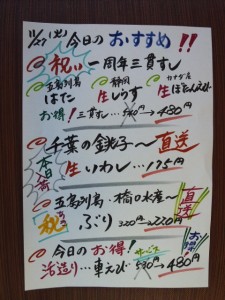 11/27(火) 今日のおすすめ!!
祝い 一周年三貫すし
五島列島 静岡 カナダ産
はた 生しらす 生ぼたんえび
お得! 三貫すし…580円→480円
本日入荷
千葉の銚子〜直送
生いわし…175円
五島列島・橋口水産〜直送
祝 ぶり 320円→220円
今日のお得! サービス お得
活造り…車えび 580円→480円